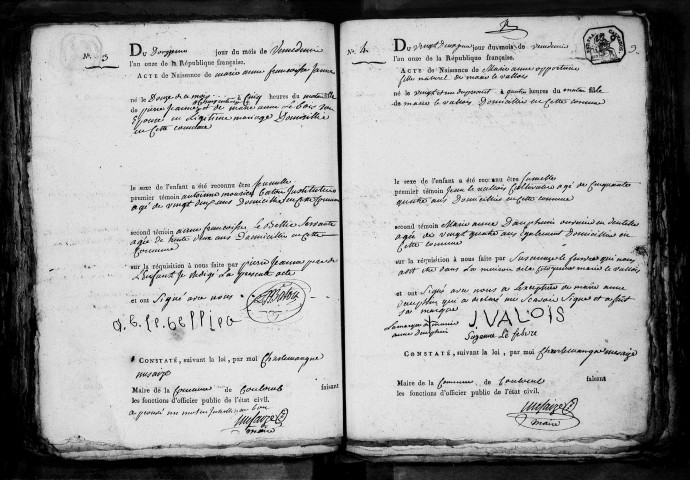 N.° 3
Du Douzieme jour du mois de Vendemiere
l'an onze de la République française.
Acte de Naissance de marie anne françoise jeanne
né le Douze de ce mois à Cinq heures du matin fille
de pierre jeanne et de marie anne Le bois son
Epouse en Legitime mariage Domiciliée
en Cette commune
le sexe de l'enfant a été reconnu être femelle
premier témoin antoinne Baton Instituteur
agé de vingt ans domicilié en Cette Commune
second témoin anne françoise le Bellier Servante
agée de trente Deux ans Domiciliée en Cette
Commune
sur la réquisition à nous faite par pierre jeanne pere de
L'enfant je rédigé La presente acte
et ont Signé avec nous Baton
Constaté, suivant la loi, par moi Charlemangne
mesaize
Maire de la Commune de Coulomb faisant
les fonctions d'officier public de l'état civil.
mesaize
maire
N.° 4.
Du jour du mois de Vendemiere
l'an onze de la République française.
Acte de Naissance de Marie anne opportune
fille naturel de marie le vallois
né le vingt et un du present à quatre heures du matin fille
de marie le vallois Domiciliée en Cette commune
le sexe de l'enfant a été reconnu être femelle
premier témoin jean le vallois Cultivateur agé de Cinquante
quatre ans Domicilié en Cette commune
second témoin Marie anne Dauphin ouvriere en dentelle
agée de vingt quatre ans également Domiciliée en
Cette commune
sur la réquisition à nous faite par Susanne le febvre qui nous
a dit etre dans La maison de marie le vallois
et ont Signé avec nous a L'exception de marie anne
Dauphin qui a declaré ne Scavoir Signé et a fait
sa marque
La marque de marie
anne dauphin
J. VALOIS
Suzanne Le febvre
Constaté, suivant la loi, par moi Charlemangne mesaize
Maire de la Commune de faisant
les fonctions d'officier public de l'état civil.
mesaize
maire